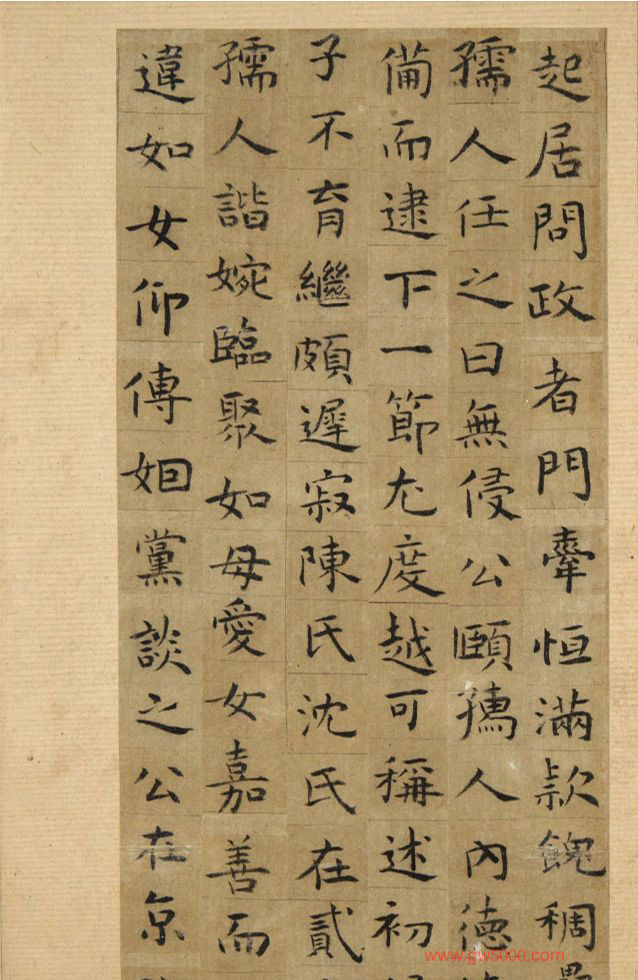 起居問政者門牽恒滿款餽稠
孺人任之曰無侵公頤孺人內德
備而逮下一節尤度越可稱述初
子不育繼頗遲寂陳氏沈氏在貳
孺人諧婉臨聚如母愛女嘉善而
違如女仰傅姻黨談之公在京
www.gw5000.com